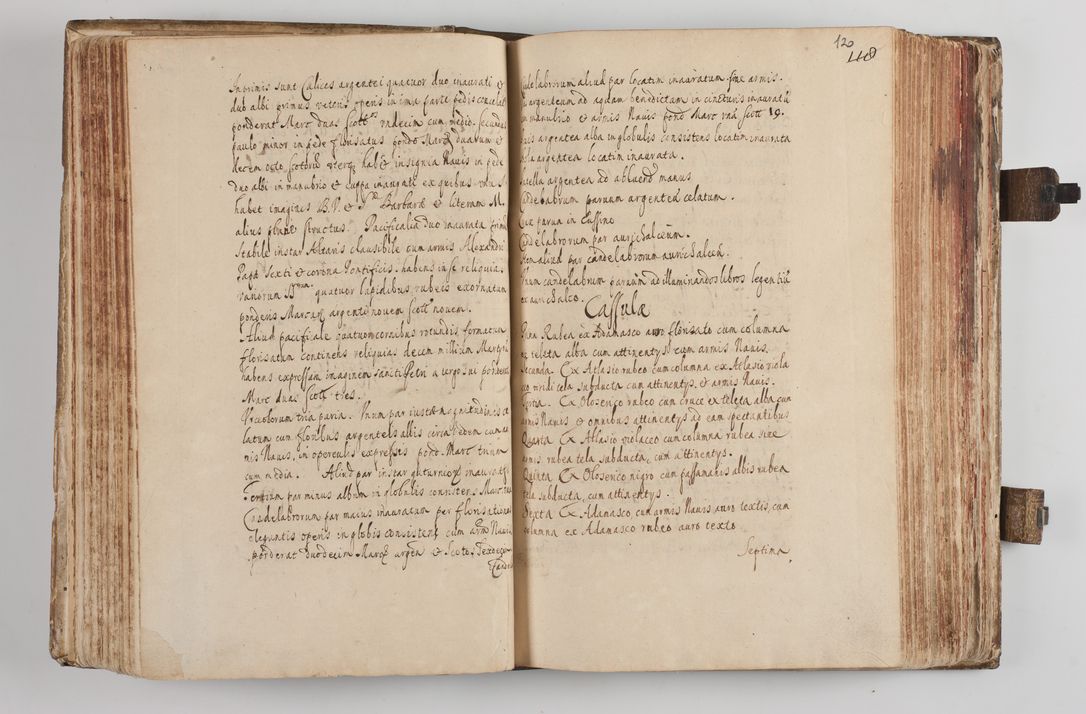 Inprimis sunt Calices argentei quatuor duo inaurati et
duo albi primus vetens operis in ima parte pedis
ponderat Marc. duas Scott. vndecim cum medio. Secundus
paulo minor in pede florisatus pondo Marc. duarum et
decem octo scotorũ vterq habet insignia Nauis in pede
Duo albi in manubrio et cuppa inaurati ex quibus vnus
habet imagines B.V. et S. Barbaræ et literam M.
alius plane structus. Pacificalia duo inaurata primũ
stabile instar Altaris clausibile cum armis Alexandri
Papæ Sexti et corona Pontificis. habens in se reliquias
variorum quatuor lapidibus rubeis exornatum
ponderis Marcarũ argenti nouem scott. nouem.
Aliud pacificale quatuor cornibus rotundis formatum
florisatum continens reliquias decem millium Martyrũ
habens expressam imaginem sancti Petri a tergo sui ponderat
Marc duas scott. tres.
Vrceolorum tria paria. Vnum par iustæ magnitudinis
latum cum floribus argenteis albis circa pedem cum
nis Nauis, in operculis expressis pond. Marc trium
cum media. Aliud par instar guturnior inauratũ
Tertium par minus album in globulis consistens Marc.
Candelabrorum par maius inauratum per florisationes
elegantis operis in globis consistens cum arm Nauis
ponderat duodecim Marc argen et Scotos Sexdecim
Candel
120
118
Candelabrorum aliud par locatim inauratum sine armis.
argenteum ad aquam benedictam in cincturis inauratũ
in manubrio et armis Nauis pond Marc vna scott 19.
argentea alba in globulis consistens locatim inaurata
argentea locatim inaurata.
argentea ad abluend manus
Candelabrum paruum argenteũ celatum.
Crux parua in Cussino
Candelabrorum par aurichalceum.
Item aliud par candelabrorum aurichalceũ.
Vnum candelabrum paruum ad illuminandos libros legentiũ
ex aurichalco.
Cassulæ
Vna Rubea ex Adamasco auro florisato cum columna
ex teleta alba cum attinentys et cum armis Nauis.
Secunda. Ex Atlasio rubeo cum columna ex Atlasio viola
ceo viridi tela subducta cum attinentys, et armis Nauis.
Tertia. Ex Oloserico rubeo cum cruce ex teleta alba cum
armis Nauis et omnibus attinentys ad eam spectantibus
Quarta Ex Atlasio violaceo cum columna rubea sine
armis rubea tela subducta, cum attinentys.
Quinta Ex Oloserico nigro cum passamanis albis rubea
tela subducta, cum attinentys.
Sexta Ex Adamasco, cum armis Nauis auro textis, cum
columna ex Adamasco rubeo auro texto
Septima.